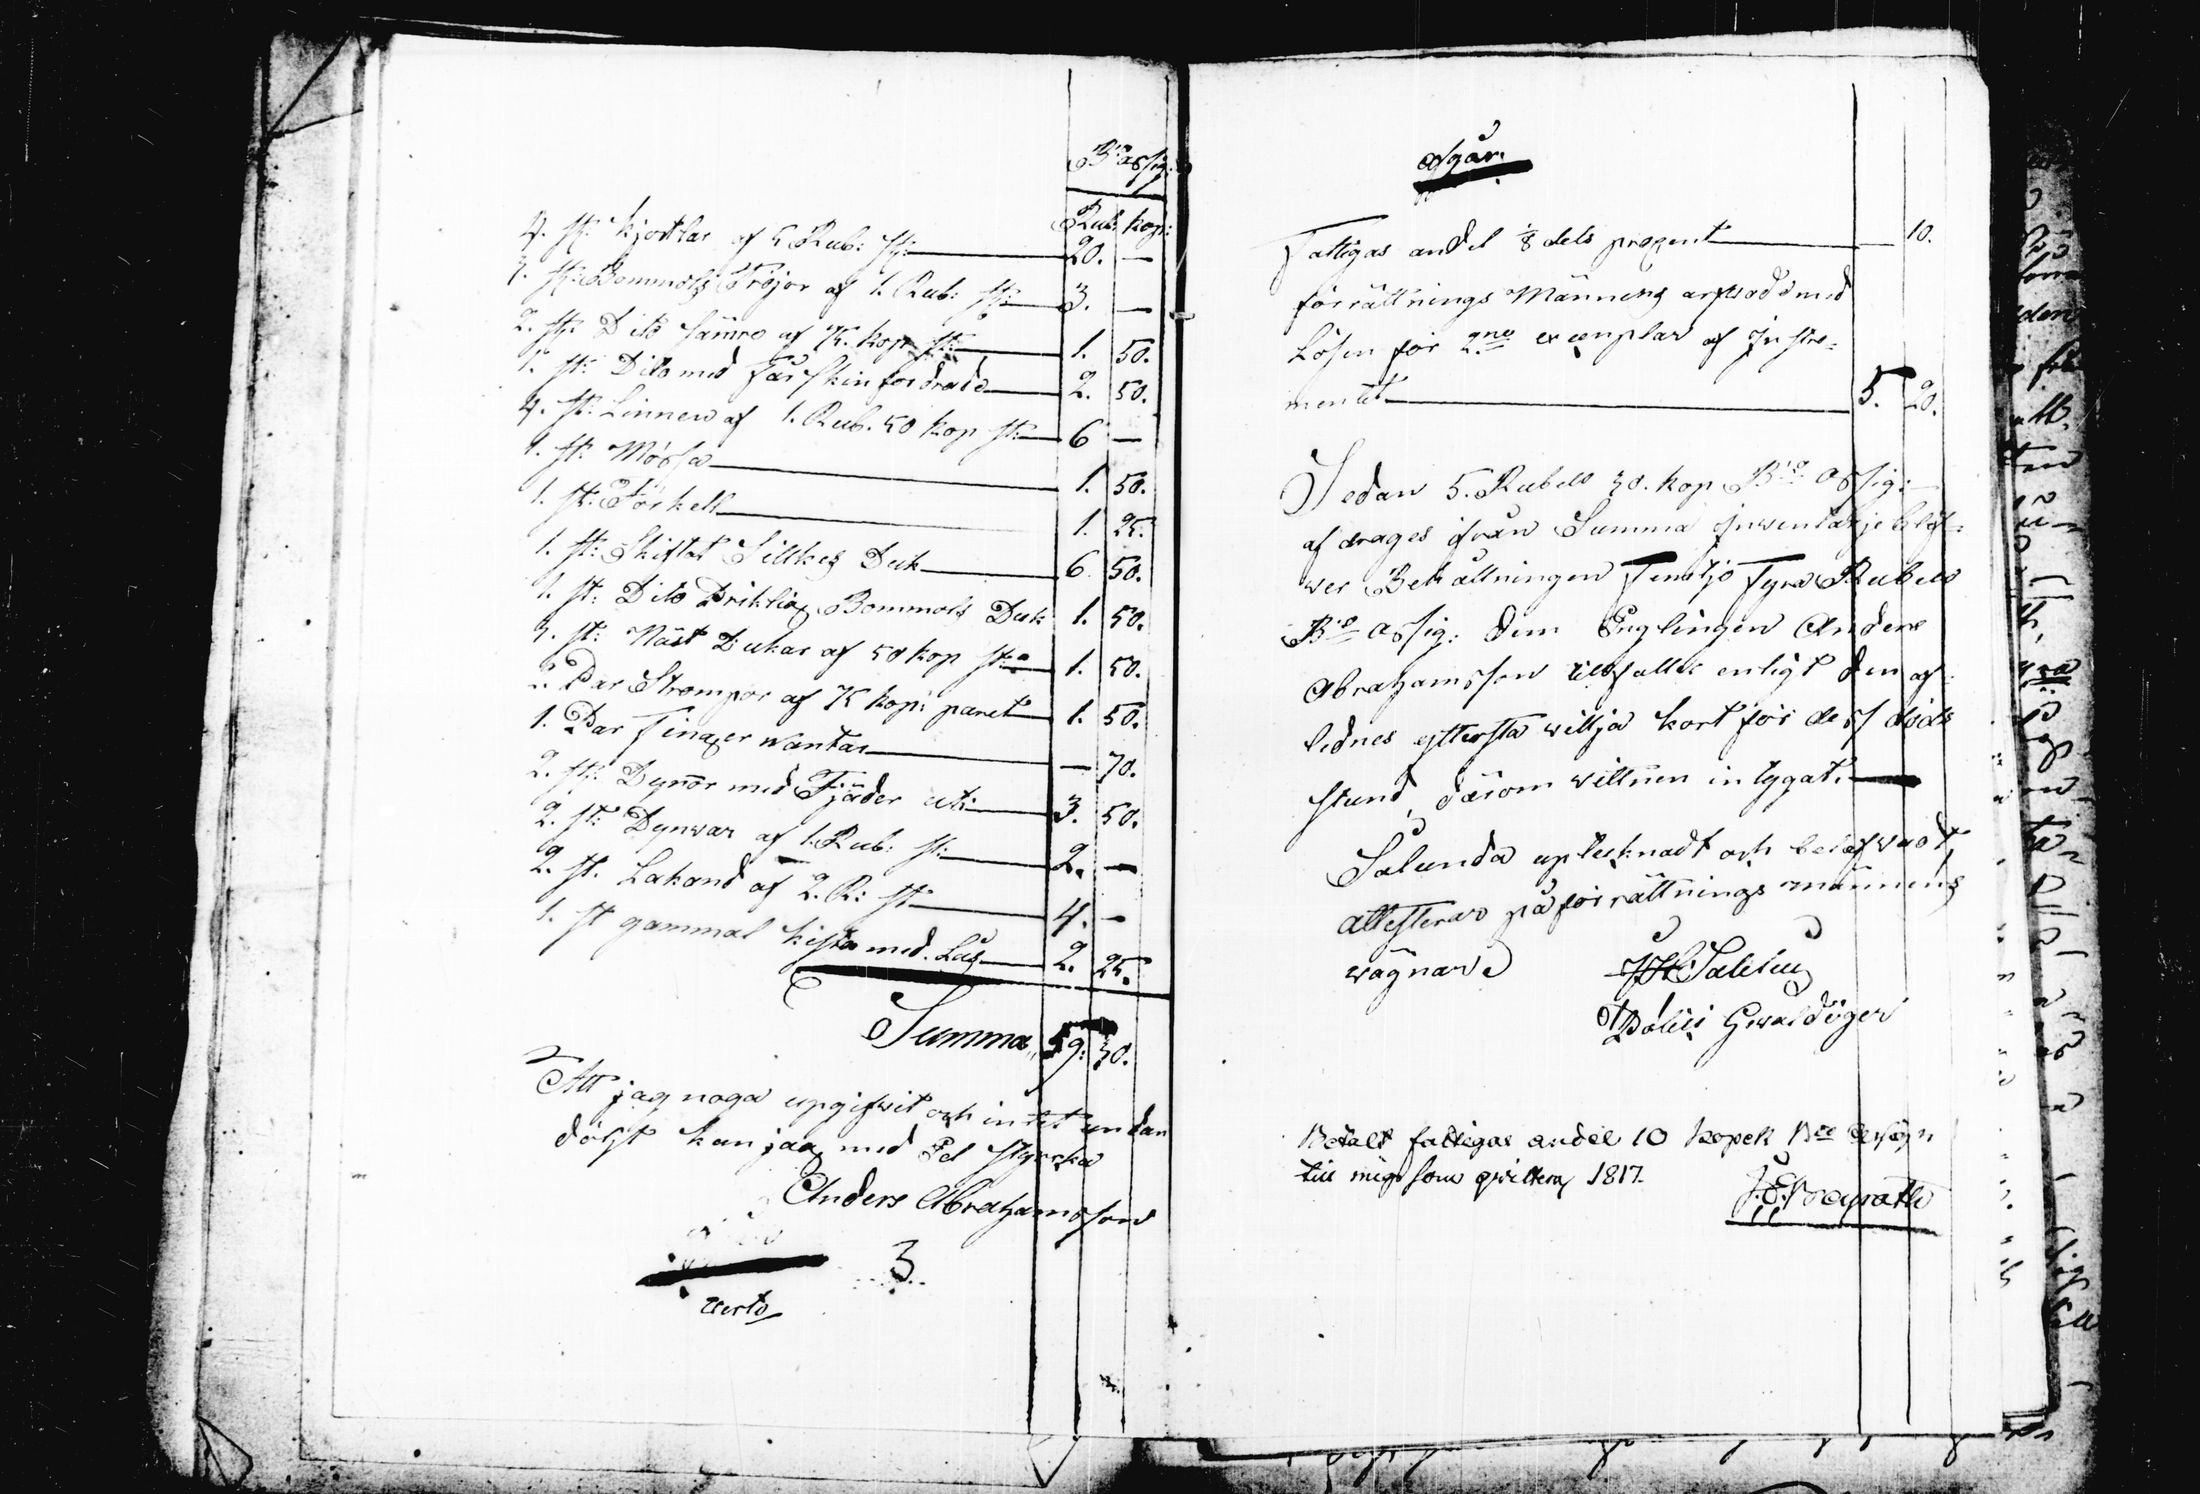 B:co assig:
Rub: kop:
4. st: kjortlar af 5 Rub: st: 20. —
3. st: Bommols Tröjor af 1. Rub: st: 3. —
2. st: Dito sämre af 75. kop st: 1. 50.
1. st: Dito med fårskin fordrade 2. 50.
4. st: Linnen af 1. Rub. 50 kop st: 6 —
1. st: Mössa 1. 50.
1. st: Förkell 1. 25.
1. st: Skiftat Sillkes Duk 6 50.
1. st: Dito Bommols Duk 1. 50.
3. st: Näst Dukar af 50 kop st: 1. 50.
2. Par Strømpor af 75 kop: paret 1. 50.
1. Par Finger wantar — 70.
2. st: Dynor med Fjäder uti 3. 50.
2. st: Dynwar af 1. Rub: st: 2. —
2. st. Lakand af 2. R: st: 4. —
1. st gammal kista med Lås 2. 25.
Summa 59: 30.
Att jag noga upgifwit och intet undan
dölgt kan jag med Ed styrcka
Anders Abrahamsson
3
verto
afgår.
Fattigas andel 1/8 dels procent — 10.
förrättnings Männens arfwode med
Lösen för 2:ne exemplar af Instru=
mentet 5. 20.
Sedan 5. Rubel 30. kop B:co assig:
af drages ifrån Summa Inwentarje blif=
wer Behållningen Femtjo Fyra Rubel
B:co assig: dem Ynglingen Anders
Abrahamsson tillfaller enligt den af=
lednes yttersta willja kort för dess döds
stund, därom wittnen intygat.
Salunda upteknadt och befwadt,
attesterar på förrättnings männens
wägnar
Polici Gewaldiger
Betalt fattigas andel 10 Kopek B:co Assign
till mig som qwitteras 1817.